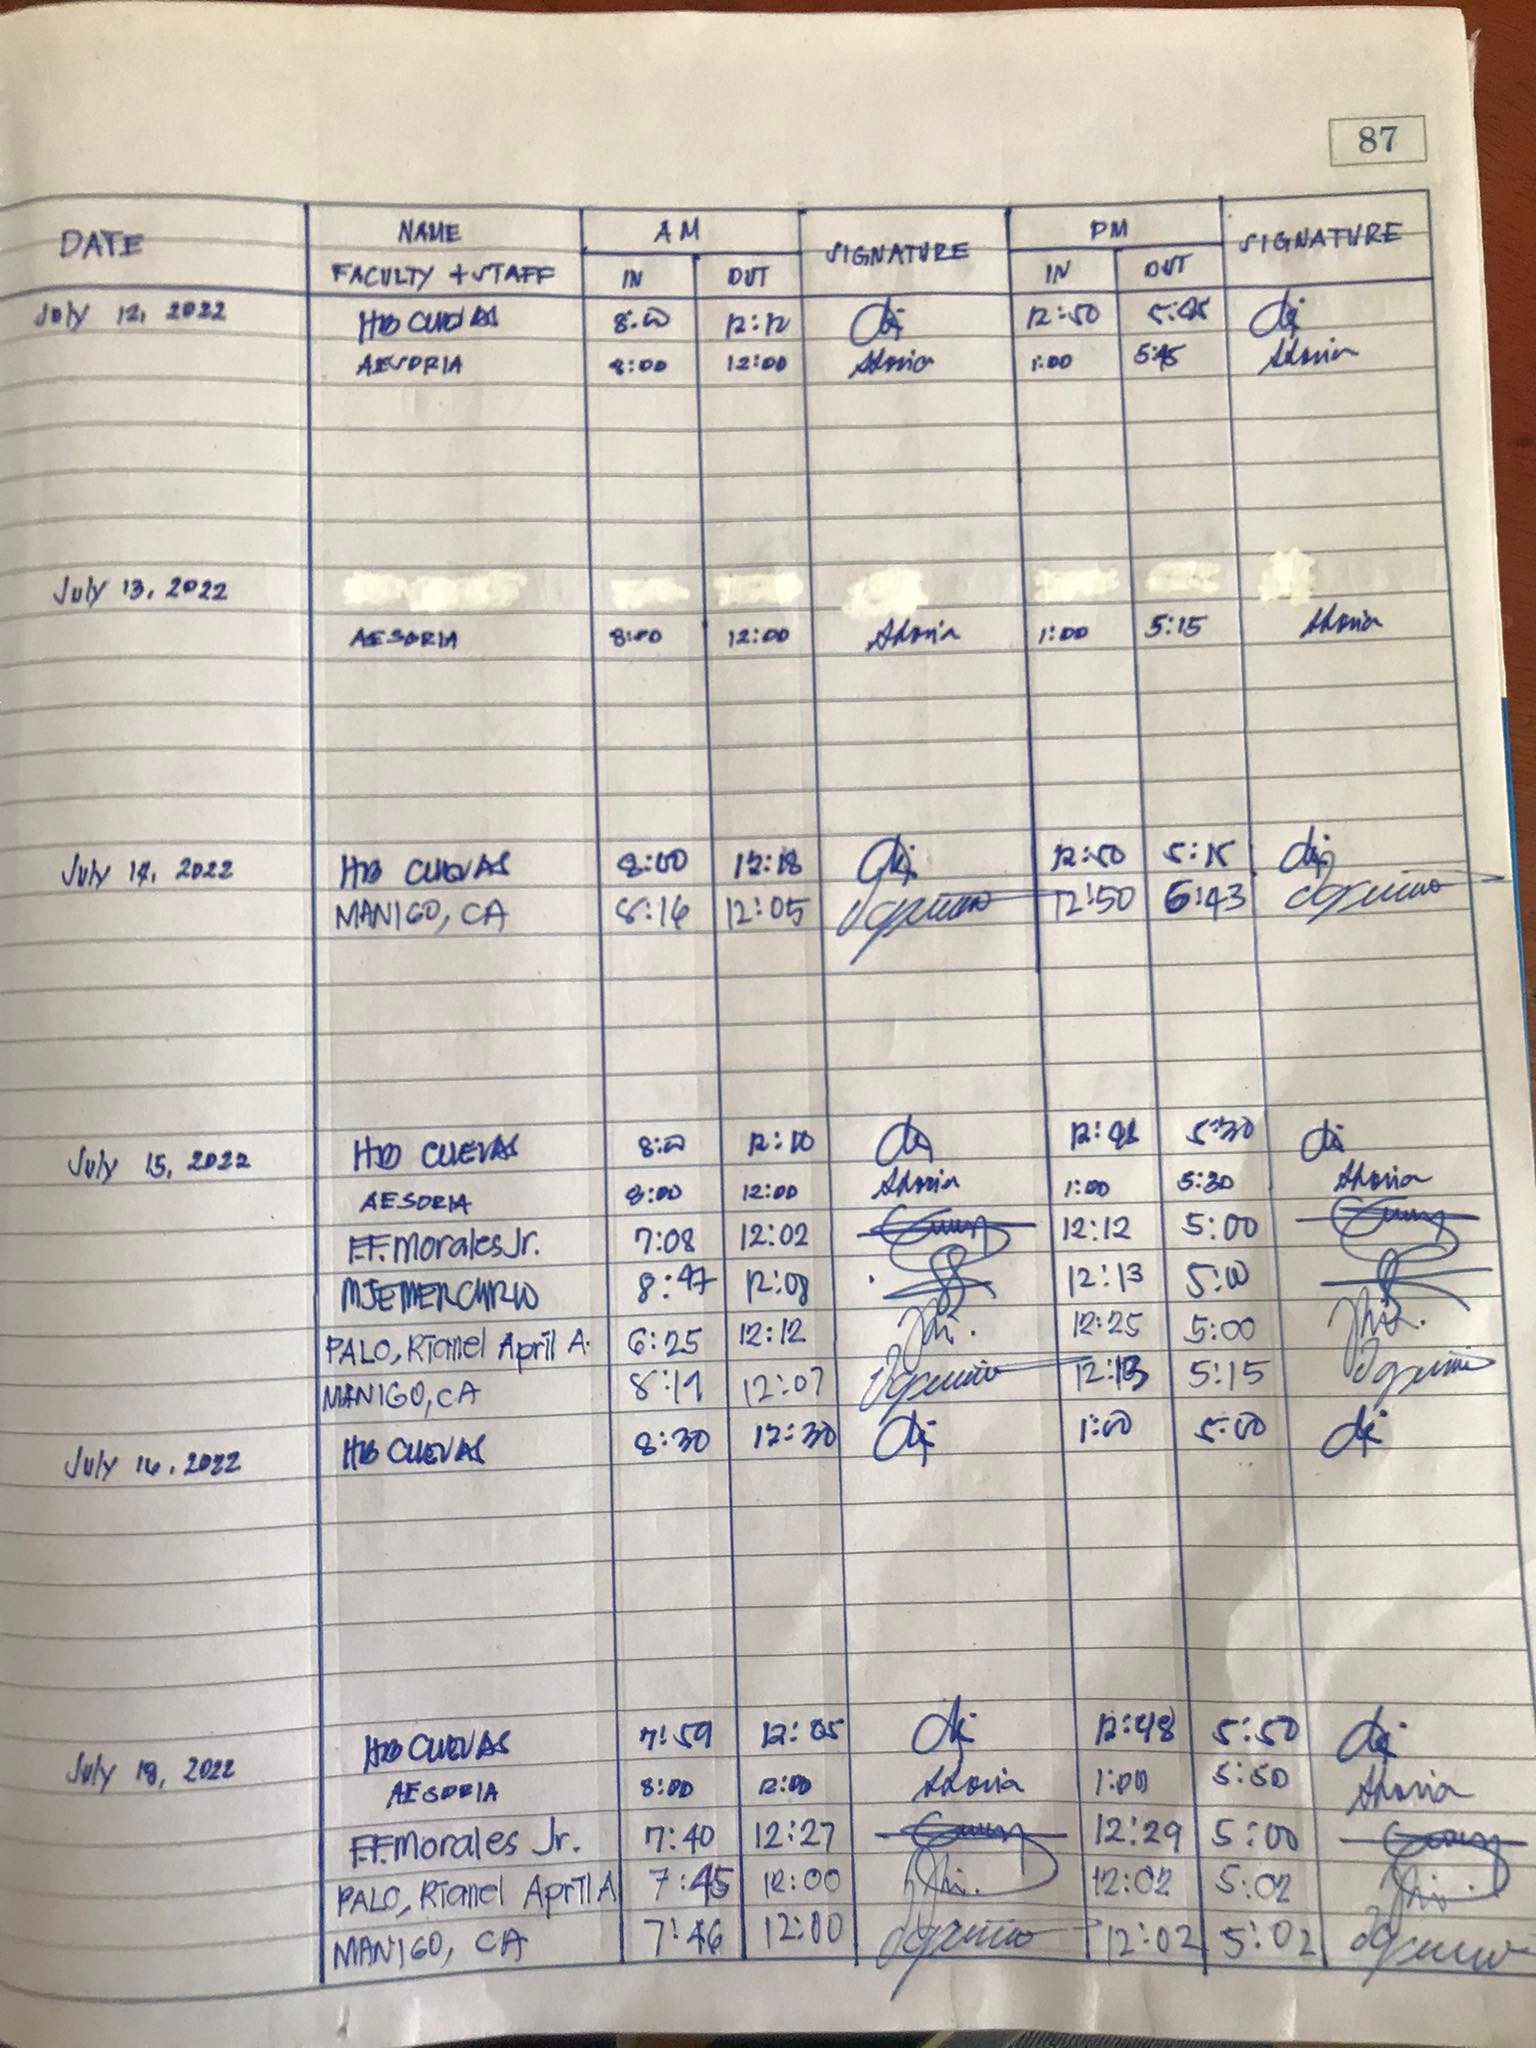 87
DATE NAME AM SIGNATURE PM SIGNATURE
FACULTY + STAFF IN OUT IN OUT
July 12, 2022 HB CUEVAS 8:00 12:12 12:50 5:45
AESORIA 8:00 12:00 1:00 5:45
July 13, 2022
AESORIA 8:00 12:00 1:00 5:15
July 14, 2022 HB CUEVAS 8:00 12:18 12:50 5:15
MANIGO, CA 8:16 12:05 12:50 6:43
July 15, 2022 HB CUEVAS 8:00 12:10 12:48 5:30
AESORIA 8:00 12:00 1:00 5:30
F.F. Morales Jr. 7:08 12:02 12:12 5:00
MJEMERCURIO 8:47 12:08 12:13 5:00
PALO, Rianel April A. 6:25 12:12 12:25 5:00
MANIGO, CA 8:19 12:07 12:13 5:15
July 16, 2022 HB CUEVAS 8:30 12:30 1:00 5:00
July 18, 2022 HB CUEVAS 7:59 12:05 12:48 5:50
AESORIA 8:00 12:00 1:00 5:50
F.F. Morales Jr. 7:40 12:27 12:29 5:00
PALO, Rianel April A 7:45 12:00 12:02 5:02
MANIGO, CA 7:46 12:00 12:02 5:02